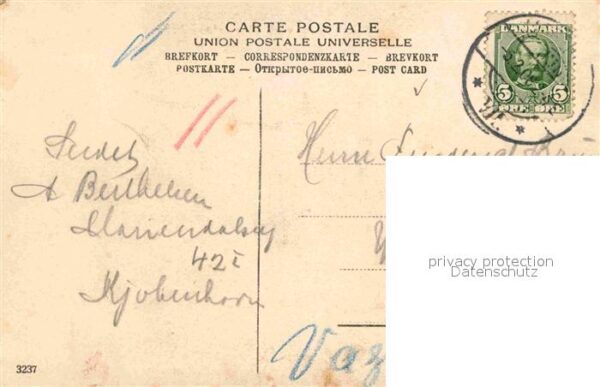 CARTE POSTALE
UNION POSTALE UNIVERSELLE
BREFKORT – CORRESPONDENZKARTE – BREVKORT
POSTKARTE – Открытое-письмо – POST CARD
DANMARK
5 5
ØRE ØRE
11
A Berthelsen
42 I
Kjobenhavn
Herrn
privacy protection
Datenschutz
Vaz
3237